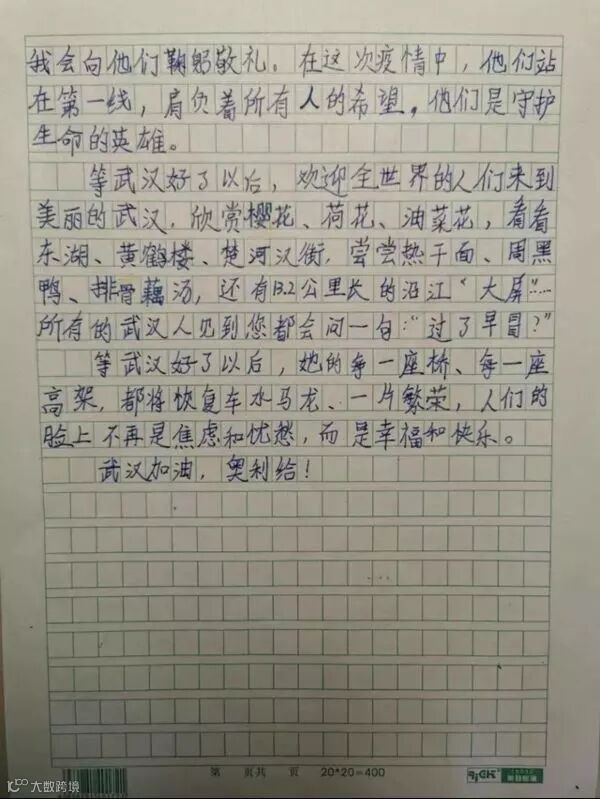 我会向他们鞠躬敬礼。在这次疫情中，他们站
在第一线，肩负着所有人的希望。他们是守护
生命的英雄。
等武汉好了以后，欢迎全世界的人们来到
美丽的武汉，欣赏樱花、荷花、油菜花，看看
东湖、黄鹤楼、楚河汉街，尝尝热干面、周黑
鸭、排骨藕汤，还有13.2公里长的沿江“大屏”……
所有的武汉人见到您都会问一句：“过了早冒？”
等武汉好了以后，她的每一座桥、每一座
高架，都将恢复车水马龙、一片繁荣，人们的
脸上不再是焦虑和忧愁，而是幸福和快乐。
武汉加油，奥利给！
第 页共 页 20*20=400
大数跨境